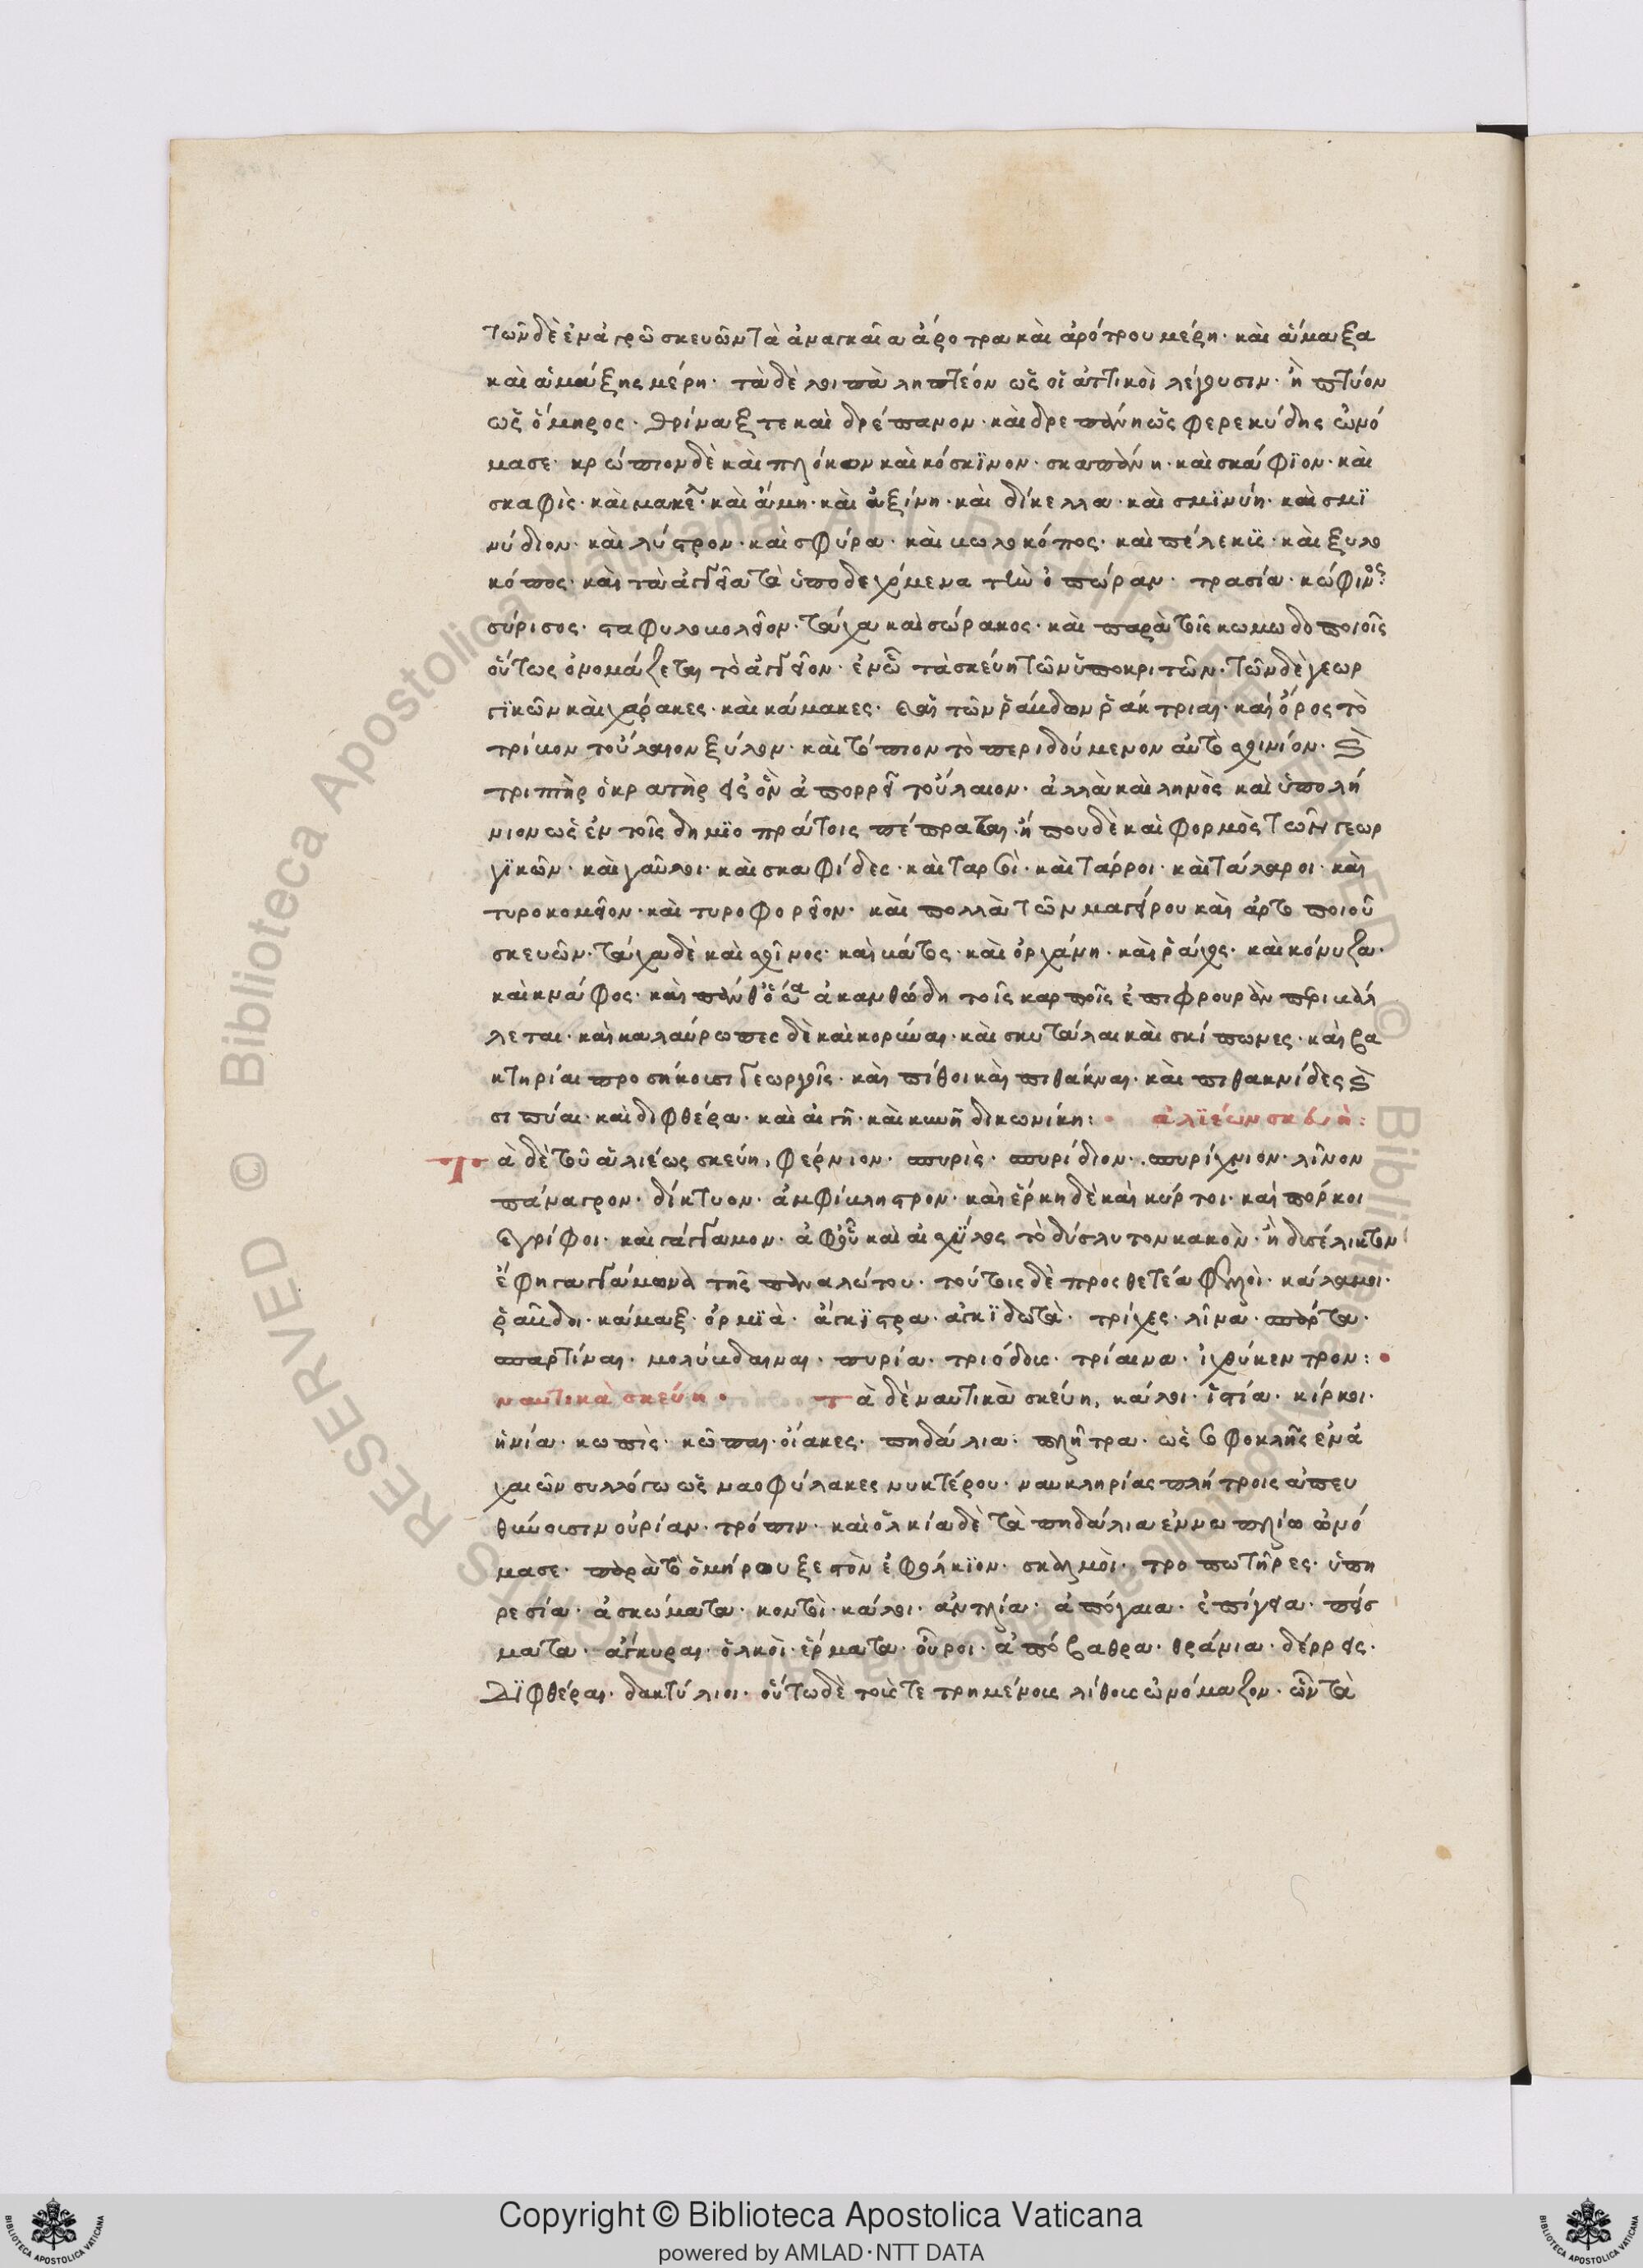 τῶν δὲ ἐν ἀγρῶ σκευῶν τὰ ἀναγκαῖα ἄροτρα καὶ ἀρότρου μέρη· καὶ ἅμαξα
καὶ ἁμάξης μέρη· τὰ δὲ λοιπὰ ληπτέον ὡς οἱ ἀττικοὶ λέγουσιν· ἢ πτύον
ὡς ὅμηρος· θρίναξ τε καὶ δρέπανον· καὶ δρεπάνη ὡς φερεκύδης ὠνό
μασε· κρώπιον δὲ καὶ πλόκανον καὶ κόσκϊνον· σκαπάνη· καὶ σκάφϊον· καὶ
σκαφὶς· καὶ μακε· καὶ ἄμη· καὶ ἀξίνη· καὶ δίκελλα· καὶ σμϊνύη· καὶ σμϊ
νύδιον· καὶ λύστρον· καὶ σφύρα· καὶ βωλοκόπος· καὶ πέλεκϋς· καὶ ξυλο
κόπος· καὶ τὰ ἀγγεῖα τὰ ὑποδεχόμενα τὴν ὀπώραν· τρασία· κώφινος:
σύρισος· σταφυλοβολεῖον· τάχα καὶ σώρακος· καὶ παρὰ τοῖς κωμωδοποιοῖς
οὕτως ὀνομάζεται τὸ ἀγγεῖον· ἐν ὧ τὰ σκεύη τῶν ὑποκριτῶν· τῶν δὲ γεωρ
γϊκῶν καὶ χάρακες· καὶ κάμακες· καὶ τῶν ῥάβδων ῥάκτριαι· καὶ ὄρος τὸ
τρίβον τοὔλαιον ξύλον· καὶ τόπιον τὸ περιδούμενον αὐτὸ σχοινίον· καὶ
τριπτὴρ ὁ κρατὴρ εἰς ὃν ἀπορρεῖ τοὔλαιον· ἀλλὰ καὶ ληνὸς καὶ ὑπολή
νιον ὡς ἐν τοῖς δημϊοπράτοις πέπραται· ἤπου δὲ καὶ φορμὸς τῶν γεωρ
γϊκῶν· καὶ γαῦλοι· καὶ σκαφίδες· καὶ ταρσοὶ· καὶ τάρροι· καὶ τάλαροι· καὶ
τυροκομεῖον· καὶ τυροφορεῖον· καὶ πολλὰ τῶν μαγείρου καὶ ἀρτοποιοῦ
σκευῶν· τάχα δὲ καὶ σχῖνος· καὶ βάτος· καὶ ὀρχάνη· καὶ ῥάχος· καὶ κόνυζα·
καὶ κνάφος· καὶ πάνθ' ὅσα ἀκανθώδη τοῖς καρποῖς ἐπιφρουρὰν περιβάλ
λεται· καὶ καλαύρωπες δὲ καὶ κορύναι· καὶ σκυτάλαι καὶ σκίπωνες· καὶ βα
κτηρίαι προσήκουσι γεωργοῖς· καὶ πίθοι καὶ πιθάκναι· καὶ πιθακνίδες καὶ
σιπύαι· καὶ διφθέρα· καὶ αἰγῆ· καὶ κυνῆ δικωνίκη: ἁλϊέων σκεύη:
Τὰ δὲ τοῦ ἁλιέως σκεύη, φέρνιον· σπυρὶς· σπυρίδιον· σπυρίχνιον· λῖνον
πάναγρον· δίκτυον· ἀμφίβληστρον· καὶ ἕρκη δὲ καὶ κύρτοι· καὶ πόρκοι
καὶ γρίφοι· καὶ γάγγαμον· ἀφ' οὗ καὶ αἰσχύλος τὸ δύσλυτον κακὸν· ἢ δυσέλικτον
ἔφη γαγγάμονα τῆς παναλώτου· τούτοις δὲ προσθετέα φελλοὶ· κάλαμοι·
ῥάβδοι· κάμαξ· ὁρμϊὰ· ἄγκϊστρα· ἀγκϊδωτὰ· τρίχες· λῖνα· σπάρτα·
σπαρτίναι· μολύβδαιναι· πυρία· τριόδους· τρίαινα· ἰχθύκεντρον:
ναυτικὰ σκεύη· Τὰ δὲ ναυτικὰ σκεύη, κάλοι· ἱστία· κίρκοι·
ἡνία· κωπὶς· κῶπαι· οἴακες· πηδάλια· πλῆτρα· ὡς σοφοκλῆς ἐν ἀ
χαιῶν συλλόγω ὡς ναοφύλακες νυκτέρου· ναυκληρίας πλήτροις ἀπευ
θύνουσιν οὐρίαν· τρόπιν· καὶ ὁλκία δὲ τὰ πηδάλια ἐν ναυπλίω ὠνό
μασε· παρὰ τὸ ὁμήρου ξεστὸν ἐφόλκϊον· σκαλμοὶ· τροπωτῆρες· ὑπη
ρεσία· ἀσκώματα· κοντοὶ· κάλοι· ἀντλία· ἀπόγαια· ἐπίγεια· πείσ
ματα· ἄγκυραι· ὁλκοὶ· ἕρματα· οὖροι· ἀπόβαθρα· θράνια· δέρρεις·
Δϊφθέραι· δακτύλιοι· οὕτω δὲ τοὺς τετρημένους λίθους ὠνόμαζον· ὧν τὰ